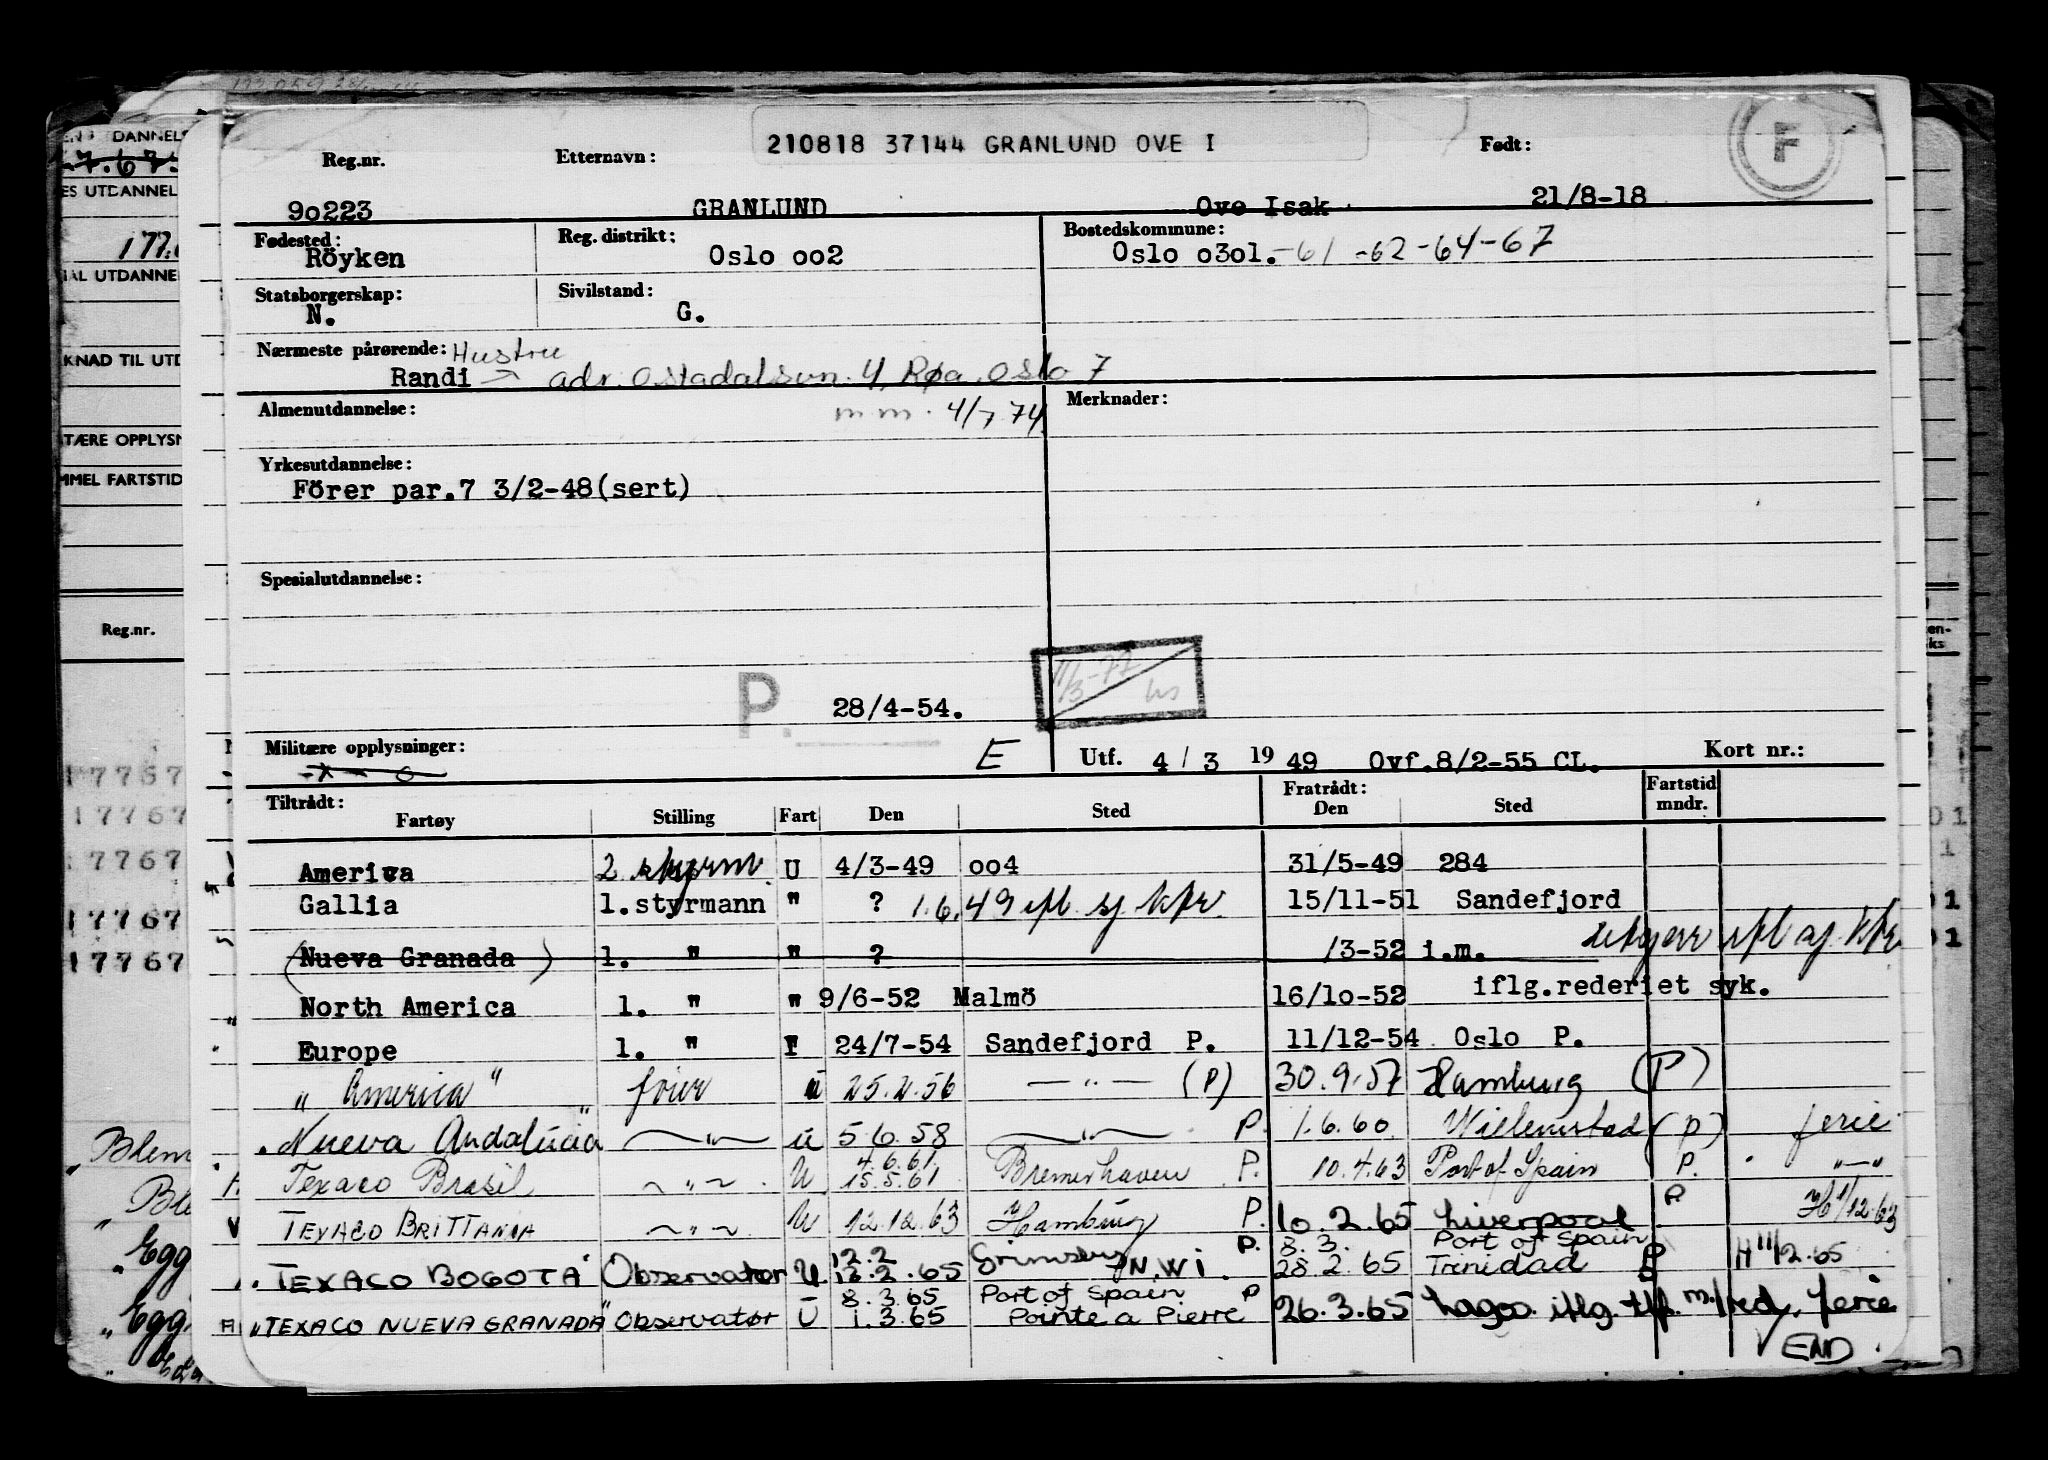 210818 37144 GRANLUND OVE I
Reg.nr. Etternavn: Født:
90223 GRANLUND Ove Isak 21/8-18
F
Fødested: Reg. distrikt: Bostedskommune:
Röyken Oslo oo2 Oslo o3ol. -61 -62-64-67
Statsborgerskap: Sivilstand:
N. G.
Nærmeste pårørende: Hustru
Randi → adr. Ostadalsvn. 4, Røa. Oslo 7
Almenutdannelse: m m. 4/7 74. Merknader:
Yrkesutdannelse:
Förer par.7 3/2-48(sert)
Spesialutdannelse:
11/3-77
P. 28/4-54.
Militære opplysninger: E Utf. 4 / 3 19 49 Ovf.8/2-55 CL. Kort nr.:
Tiltrådt: Fratrådt: Fartstid
Fartøy Stilling Fart Den Sted Den Sted mndr.
America 2 styrm. U 4/3-49 oo4 31/5-49 284
Gallia 1.styrmann " ? 1.6.49 ifl. sj. kfr. 15/11-51 Sandefjord
(Nueva Granada) 1. " " ? /3-52 i.m. ifl sj. kfr
North America 1. " " 9/6-52 Malmö 16/10-52 iflg.rederiet syk.
Europe 1. " 24/7-54 Sandefjord P. 11/12-54 Oslo P.
"America" fører u 25.2.56 — " — (P) 30.9.57 Hamburg (P)
"Nueva Andalucia" — " — u 5.6.58 — " — P. 1.6.60 Willemstad (P) ferie
4.6.61.
Texaco Brasil — " — U 15.5.61 Bremerhaven P. 10.4.63 Port of Spain P. — " —
TEXACO BRITTANIA — " — U 12.12.63 Hamburg P. 10.2.65 Liverpool P H 1/12.63
12.2 Grimsby P. 8.3. Port of Spain
"TEXACO BOGOTA" Observatør U 13.2.65 N.W.I. 28.2.65 Trinidad P H 11/2.65
8.3.65 Port of Spain P
"TEXACO NUEVA GRANADA" Observatør U 1.3.65 Pointe a Pierre 26.3.65 Lagos. iflg. tlf. m/red. ferie
END
DANNELS
7.67
ES UTDANNEL
177.
IAL UTDANNE
KNAD TIL UTD
TÆRE OPPLYSN
MMEL FARTSTID
Reg.nr.
17767
17767
17767
17767
17767
Blem
Ble
Egg
Egg
en-
ks
01
1
01
01